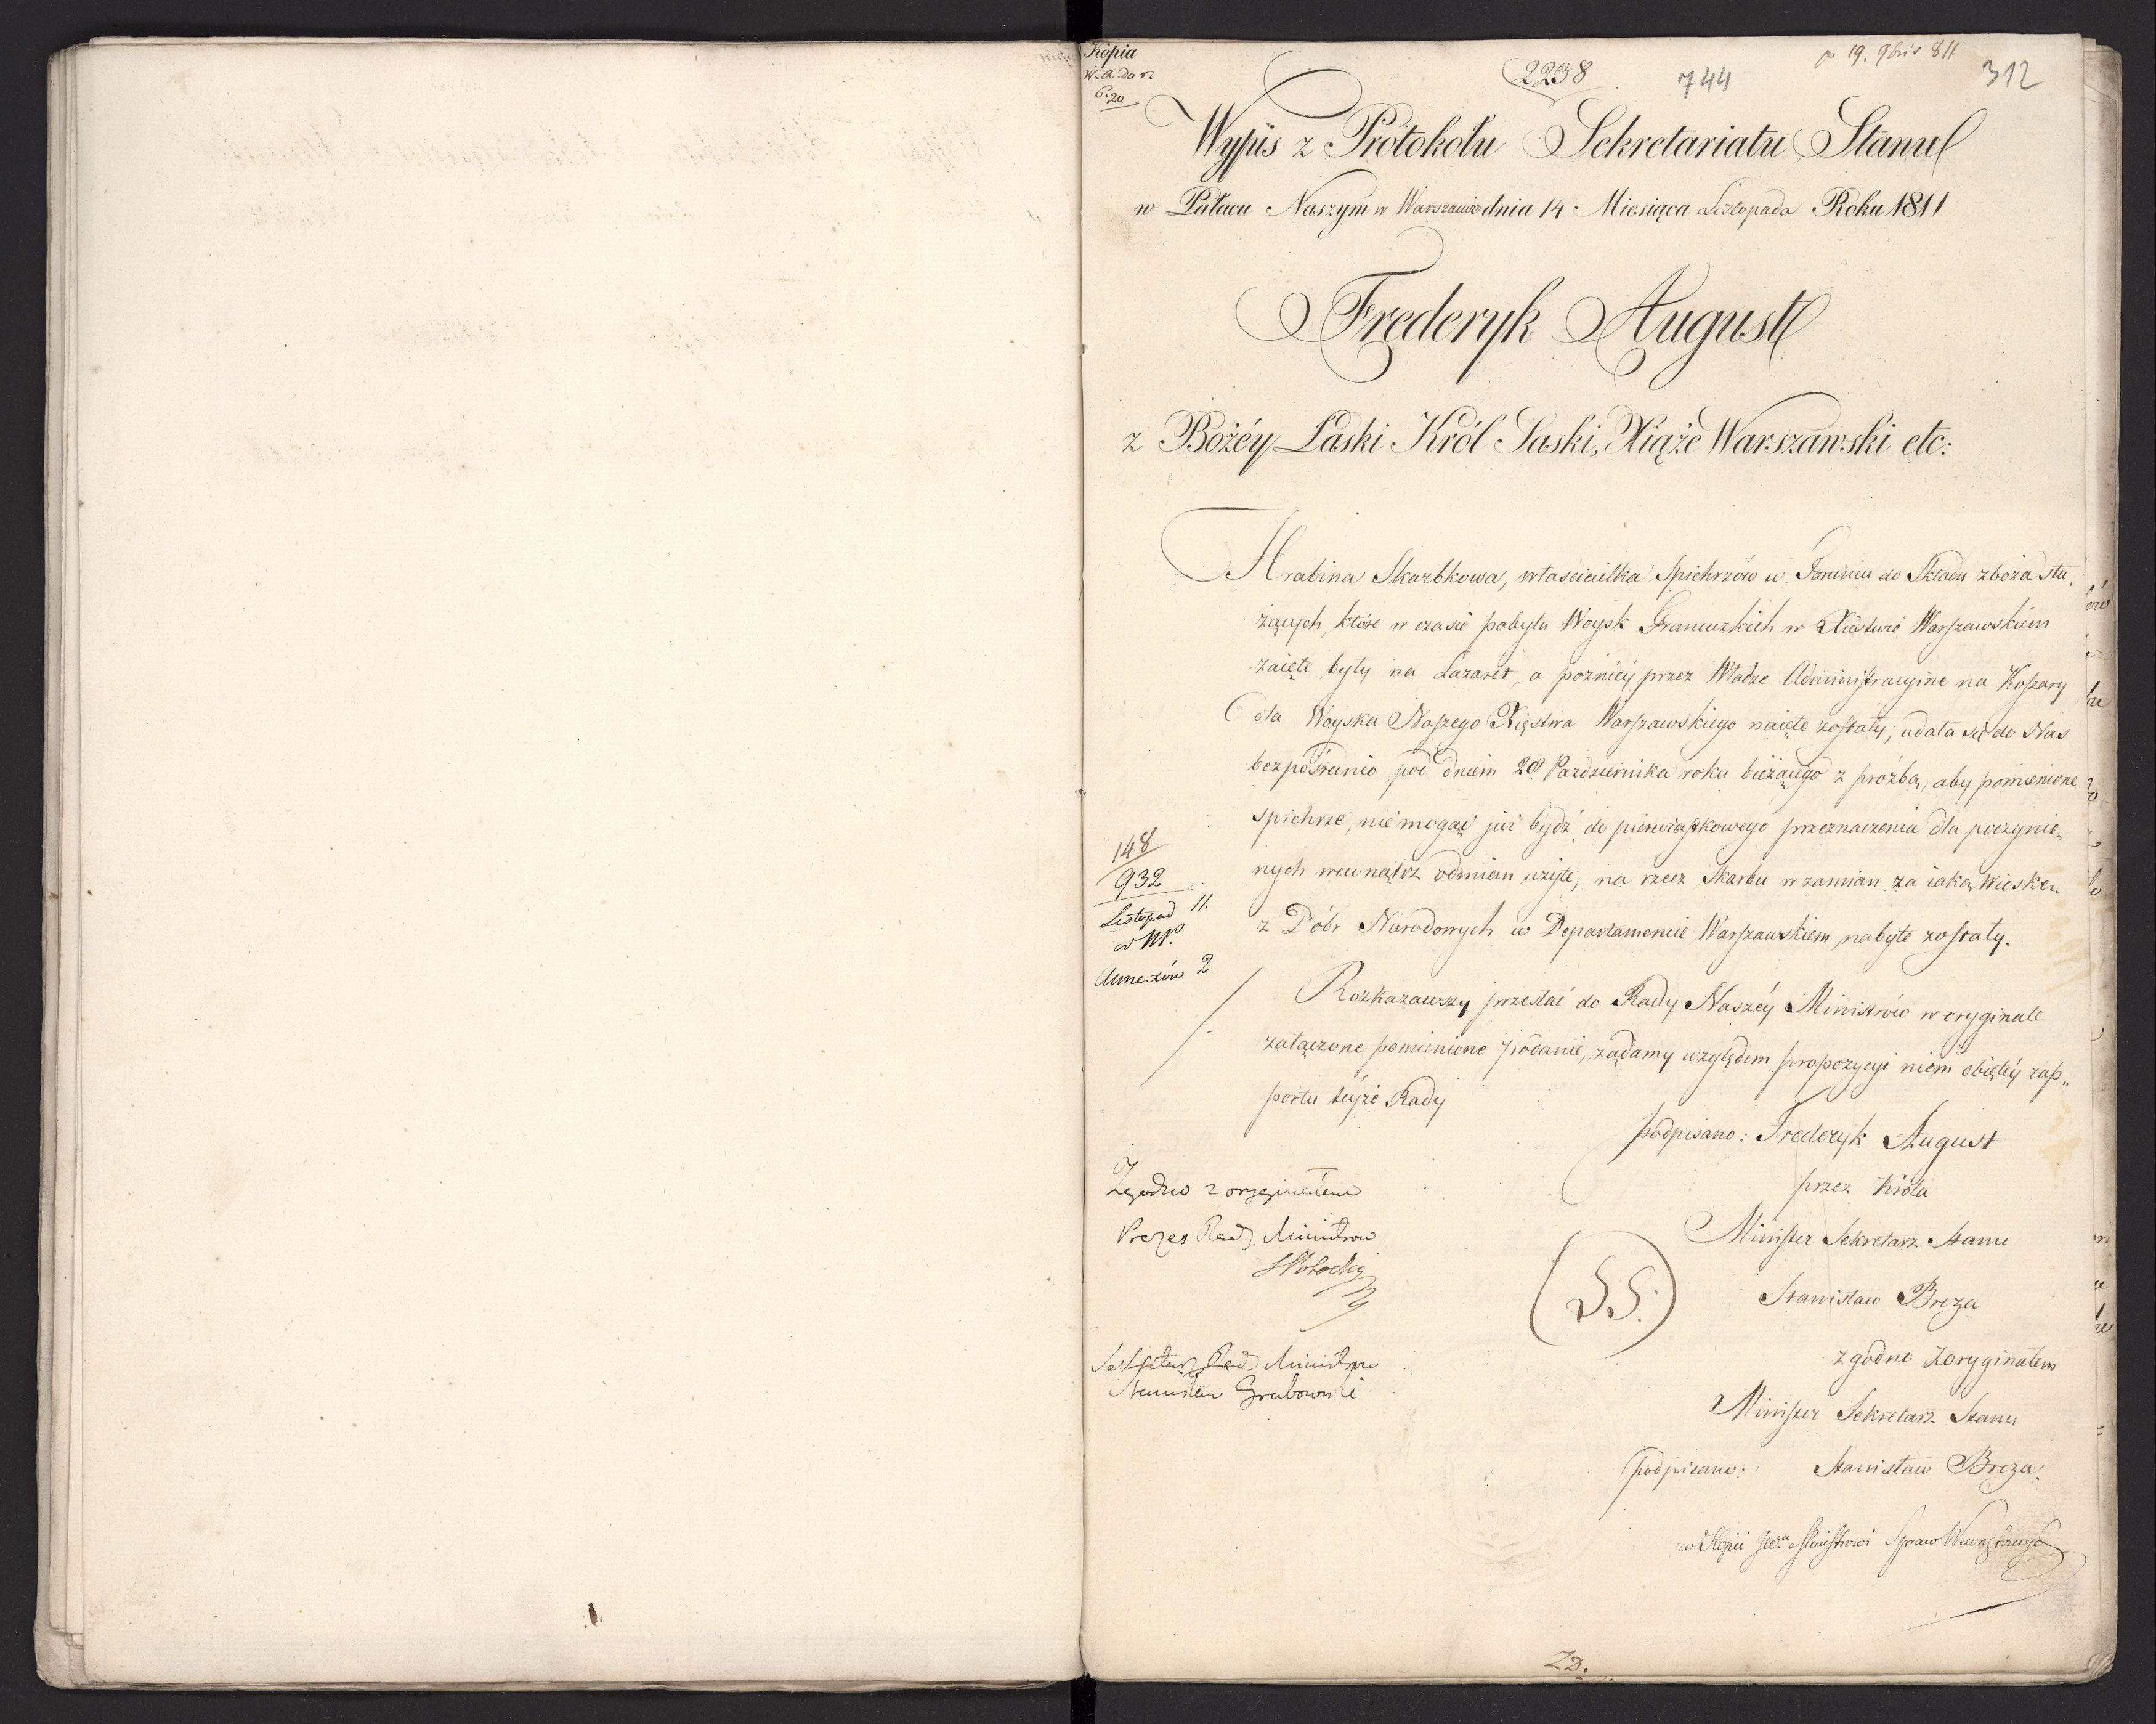 Kopia
2238
744
19. 9bris 811
312
6.20
Wypis z Protokołu Sekretariatu Stanu
w Pałacu Naszym w Warszawie dnia 14 Miesiąca Listopada Roku 1811
Frederyk August
z Bożéy Łaski Król Saski, Xiąże Warszawski etc:
Hrabina Skarbkowa, właścicielka Spichrzów w Toruniu do Składu zboża słu„
żących, które w czasie pobytu Woysk Francuzkich w Xięstwie Warszawskiem
zaięte były na Lazaret, a pozniéy przez Władze Administracyine na Koszary
dla Woyska Naszego Xięstwa Warszawskiego naięte zostały; udała się do Nas
bezpośrednio pod dniem 28 Pazdziernika roku bieżącego z prożbą, aby pomienione
spichrze, nie mogąc już bydź do pierwiastkowego przeznaczenia dla poczynio„
nych wewnątrz odmian użyte, na rzecz Skarbu w zamian za iaką Wioskę
z Dóbr Narodowych w Departamencie Warszawskiem nabyte zostały.
148
932
Listopad 11.
Annexów 2
Rozkazawszy przesłać do Rady Naszéy Ministrów w oryginale
załączone pomienione podanie, żądamy względem propozycyi niem obiętéy rap„
portu téyże Rady
podpisano: Frederyk August
przez Króla
Minister Sekretarz Stanu
Stanisław Breza
zgodno z oryginałem
Minister Sekretarz Stanu
podpisano: Stanisław Breza.
Zgodno z oryginałem
Prezes Rady Ministrów
SPotocki
Sekretarz Rady Ministrów
Stanisław Grabowski
(L S.)
w Kopii JW. Ministrowi Spraw Wewnętrznych